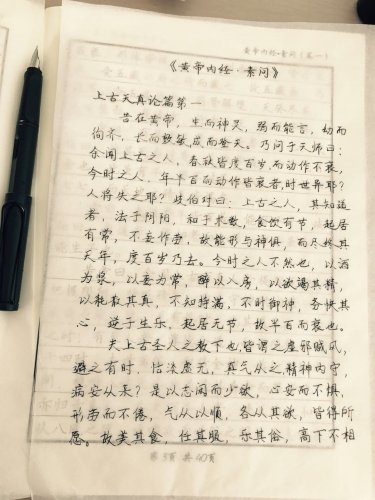 黄帝内经·素问(卷一)
《黄帝内经·素问》
上古天真论篇第一
昔在黄帝,生而神灵,弱而能言,幼而
徇齐,长而敦敏,成而登天。乃问于天师曰:
余闻上古之人,春秋皆度百岁,而动作不衰,
今时之人,年半百而动作皆衰者,时世异耶?
人将失之耶?岐伯对曰:上古之人,其知道
者,法于阴阳,和于术数,食饮有节,起居
有常,不妄作劳,故能形与神俱,而尽终其
天年,度百岁乃去。今时之人不然也,以酒
为浆,以妄为常,醉以入房,以欲竭其精,
以耗散其真,不知持满,不时御神,务快其
心,逆于生乐,起居无节,故半百而衰也。
夫上古圣人之教下也,皆谓之虚邪贼风,
避之有时,恬淡虚无,真气从之,精神内守,
病安从来?是以志闲而少欲,心安而不惧,
形劳而不倦,气从以顺,各从其欲,皆得所
愿。故美其食,任其服,乐其俗,高下不相
第3页 共40页